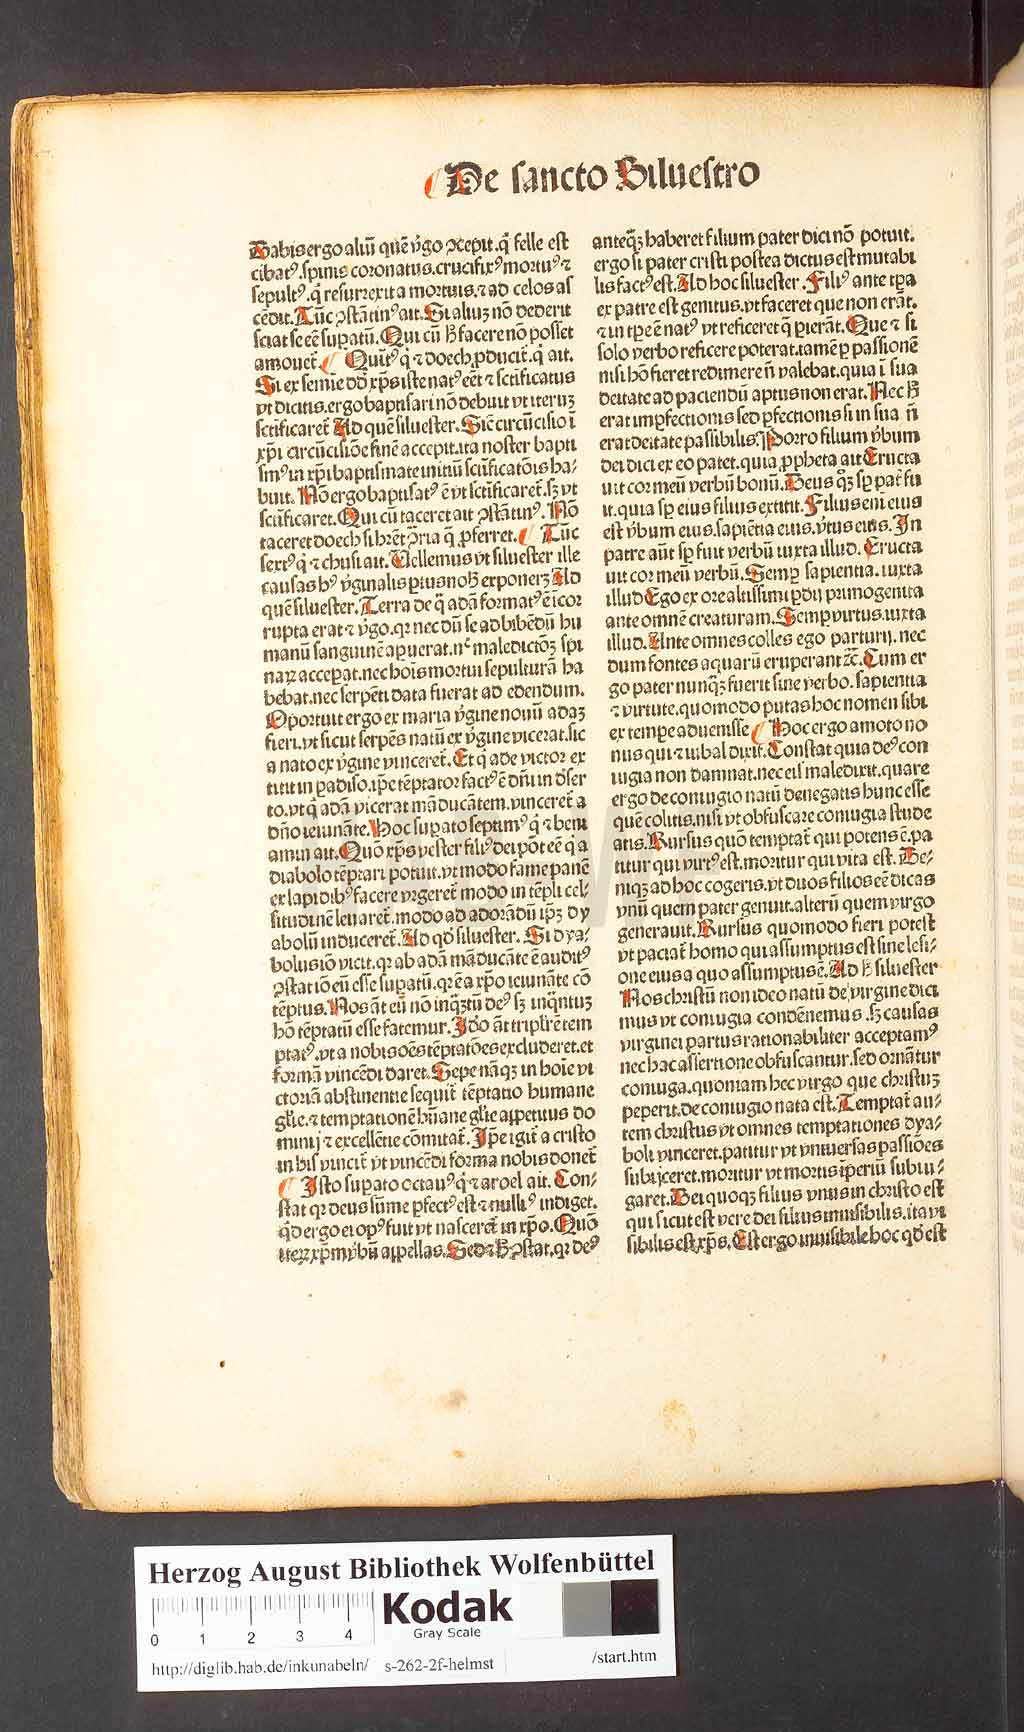 De sancto Siluestro
Dabis ergo aliū quē v̾go ꝯcepit. q̄ felle est
cibatꝰ. spinis coronatus. crucifixꝰ mortuꝰ ⁊
sepultꝰ. q̄ resurrexit a mortuis. ⁊ ad celos as
cēdit. Tūc ꝯstātinꝰ ait. Si aliuꝫ nō dederit
sciat se eē supatū. Qui cū h̄ facere nō posset
amouet᷑. Quītꝰ q̄ ⁊ doech. ꝓducit᷑. q̄ ait.
Si ex semie dd̄ xp̄s iste natꝰ eēt ⁊ sctīficatus
vt dicitis. ergo baptisari nō debuit vt iteruꝫ
sctīficaret᷑ Ad quē siluester. Sic̄ circūcisio ī
xp̄i circūcisiōe finē accepit. ita noster bapti
smꝰ in xp̄i baptismate initiū scīificatōis ha-
buit. Nō ergo baptisatꝰ ē vt sctīficaret᷑. sꝫ vt
sctīficaret. Qui cū taceret ait ꝯstātinꝰ. Nō
taceret doech si hr̄et ꝯria q̄ ꝓferret. Tūc
sextꝰ q̄ ⁊ chusi ait. Uellemus vt siluester ille
causas hꝰ v̾ginalis ptus nob̄ exponeꝫ Ad
quē siluester. Terra de q̄ adā formatꝰ ē īcor
rupta erat ⁊ v̾go. qꝛ nec dū se ad bibēdū hu
manū sanguinē apuerat. nᶜ maledictōꝫ spi
naꝝ accepat. nec hoīs mortui sepulturā ha
bebat. nec serpēti data fuerat ad edendum.
Oportuit ergo ex maria v̾gine nouū adaꝫ
fieri. vt sicut serpēs natū ex v̾gine vicerat. sic
a nato ex v̾gine vinceret᷑. Et q̄ ade victor ex
titit in padiso. ip̄e tēptator factꝰ ē dn̄i in d̾ser
to. vt q̄ adā vicerat māducātem. vinceret᷑ a
dn̄o ieiunāte. Hoc supato septimꝰ q̄ ⁊ beni
amin ait. Quō xp̄s vester filiꝰ dei pōt eē q̄ a
diabolo tēptari potuit. vt modo fame panē
ex lapidibꝰ facere vrgeret᷑ modo in tēpli cel-
situdinē leuaret᷑. modo ad adorādū ip̄ꝫ dy
abolū induceret᷑. Ad qd̄ siluester. Si dya-
bolus iō vicit. qꝛ ab adā māducāte ē auditꝰ
ꝯstat iō eū esse supatū. qꝛ ē a xp̄o ieiunāte cō
tēptus. Nos āt eū nō inq̄ꝫtū deꝰ sꝫ inq̄ntuꝫ
hō tēptatū esse fatemur. Ido āt triplr̄ē tem
ptatꝰ. vt a nobis oēs tēptatōes excluderet. et
formā vincēdi daret. Sepe nāqꝫ in hoīe vi
ctoriā abstinentie sequit᷑ tēptatio humane
gl̄ie. ⁊ temptationē hūane gl̄ie appetitus do
minij ⁊ excellētie cōmitat᷑. Ip̄e igit᷑ a cristo
in his vincit᷑ vt vincēdi forma nobis donet᷑
Isto supato octauꝰ q̄ ⁊ aroel ait. Con-
stat qꝛ deus sūme pfectꝰ est ⁊ nulliꝰ indiget.
qd̄ ergo ei opꝰ fuit vt nasceret᷑ in xp̄o. Quō
iteꝝ xp̄m v̾bū appellas. Sed ⁊ h̄ ꝯstat. qꝛ deꝰ
anteqꝫ haberet filium pater dici nō potuit.
ergo si pater cristi postea dictus est mutabi
lis factꝰ est. Ad hoc siluester. Filiꝰ ante tp̄a
ex patre est genitus. vt faceret que non erāt.
⁊ in tp̄e ē natꝰ vt reficeret q̄ pierāt. Que ⁊ si
solo verbo reficere poterat. tamē ꝑ passionē
nisi hō fieret redimere n̄ valebat. quia ī sua
deitate ad paciendū aptus non erat. Nec h̄
erat impfectionis sed pfectionis si in sua n̄
erat deitate passibilis. Porro filium v̾bum
dei dici ex eo patet. quia ꝓpheta ait Eructa
uit cor meū verbū bonū. Deus qꝫ sp̄ pat᷑ fu
it. quia sp̄ eius filius extitit. Filius eni eius
est v̾bum eius. sapiētia eius. v̾tus eius. In
patre aūt sp̄ fuit verbū iuxta illud. Eructa
uit cor meū verbū. Semꝑ sapientia. iuxta
illud Ego ex ore altissimi ꝓdij primogenita
ante omnē creaturam. Semꝑ virtus. iuxta
illud. Ante omnes colles ego parturij. nec
dum fontes aquarū eruperant ⁊c̄. Cum er
go pater nunqꝫ fuerit sine verbo. sapientia
⁊ virtute. quomodo putas hoc nomen sibi
ex tempe aduenisse Hoc ergo amoto no
nus qui ⁊ iubal dixit. Constat quia deꝰ con
iugia non damnat. nec eis maledixit. quare
ergo de coniugio natū denegatis hunc esse
quē colitis. nisi vt obfuscare coniugia stude
atis. Rursus quō temptat᷑ qui potens ē. pa
titur qui virtꝰ est. moritur qui vita est. De-
niqꝫ ad hoc cogeris. vt duos filios eē dicas
vnū quem pater genuit. alterū quem virgo
generauit. Rursus quomodo fieri potest
vt paciat᷑ homo qui assumptus est sine lesi-
one eius a quo assumptus ē. Ad h̄ siluester
Nos christū non ideo natū de virgine dici
mus vt coniugia condēnemus. sꝫ causas
virginei partus rationabiliter acceptamꝰ
nec hac assertione obfuscantur. sed ornātur
coniuga. quoniam hec virgo que christuꝫ
peperit. de coniugio nata est. Temptat᷑ au-
tem christus vt omnes temptationes dya-
boli vinceret. patitur vt vniuersas passiōes
subijceret. moritur vt mortis īperiū subiu-
garet. Dei quoqꝫ filius vnus in christo est
qui sicut est vere dei filius inuisibilis. ita vi
sibilis est xp̄s. Est ergo inuisibile hoc qd̄ est
Herzog August Bibliothek Wolfenbüttel
0 1 2 3 4
Kodak
Gray Scale
http://diglib.hab.de/inkunabeln/ s-262-2f-helmst /start.htm
HAB-WF